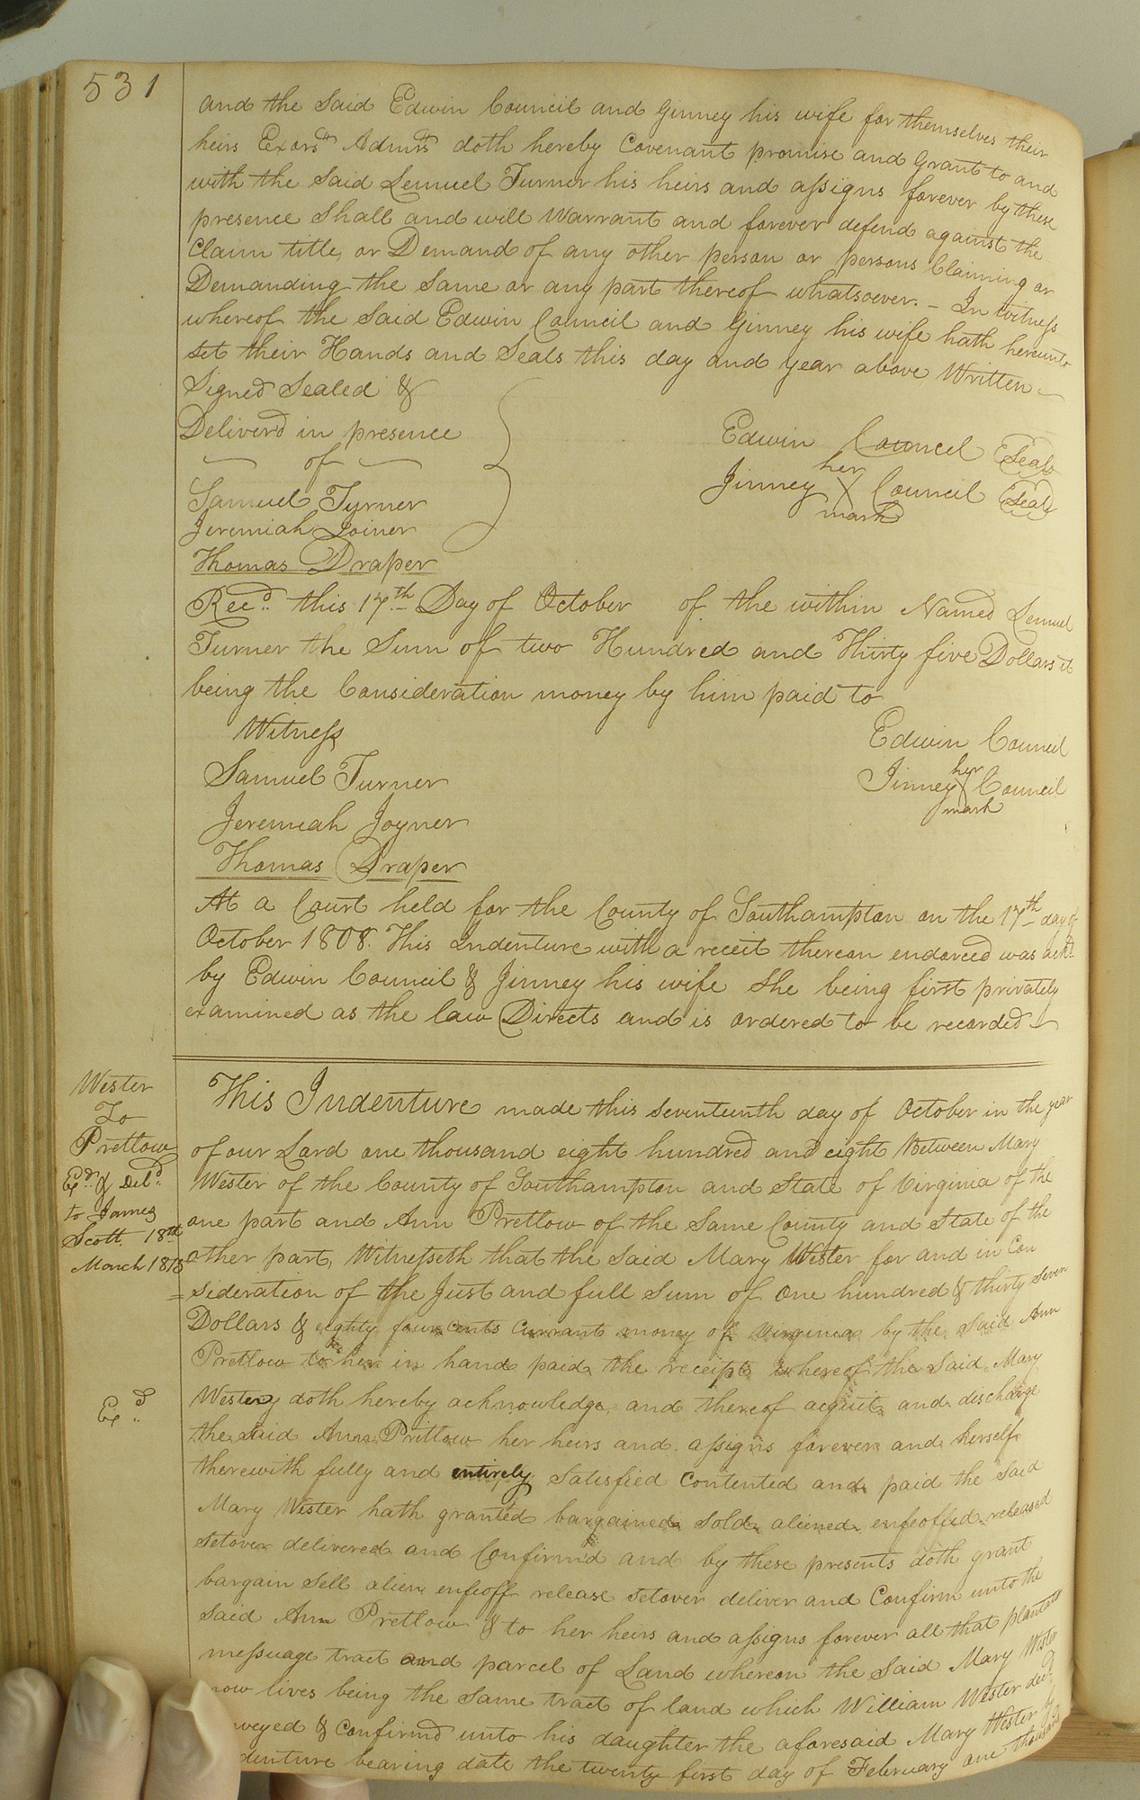 531
and the Said Edwin Council and Ginney his wife for themselves their
heirs Exors Admrs doth hereby Covenant promise and Grant to and
with the Said Lemuel Turner his heirs and assigns forever by these
presence Shall and will Warrant and forever defend against the
Claim title, or Demand of any other person or persons Claiming or
Demanding the Same or any part thereof whatsoever. - In witness
whereof the Said Edwin Council and Ginney his wife hath hereunto
set their Hands and Seals this day and year above Written
Signed Sealed &
Deliverd in presence
of
Samuel Turner
Jeremiah Joiner
Thomas Draper
Edwin Councel Seal
her
Jinney X Council Seal
mark
Recd. this 17th Day of October of the within Named Lemuel
Turner the Sum of two Hundred and Thirty five Dollars it
being the Consideration money by him paid to
Witness
Samuel Turner
Jeremiah Joyner
Thomas Draper
Edwin Council
her
Jinney X Council
mark
At a Court held for the County of Southampton on the 17th day of
October 1808. This Indenture with a receit thereon endorced was ackd.
by Edwin Council & Jinney his wife She being first privately
examined as the law Directs and is ordered to be recorded
Wester
To
Pretlow
Exd. & Deld.
to James
Scott 18th
March 1815
Exd.
This Indenture made this seventeenth day of October in the year
of our Lord one thousand eight hundred and eight Between Mary
Wester of the County of Southampton and State of Virginia of the
one part and Ann Pretlow of the Same County and State of the
other part, Witnesseth that the Said Mary Wester for and in Con
=sideration of the Just and full Sum of One hundred & thirty Seven
Dollars & eighty four cents Currant money of Virginia by the Said Ann
Pretlow to her in hand paid the receipt whereof the Said Mary
Wester doth hereby acknowledge and thereof acquit and discharge
the said Ann Pretlow her heirs and assigns forever and herself
therewith fully and entirely Satisfied Contented and paid the Said
Mary Wester hath granted bargained Sold aliened enfeoffed released
setover delivered and Confirm'd and by these presents doth grant
bargain Sell alien enfeoff release setover deliver and Confirm unto the
Said Ann Pretlow & to her heirs and assigns forever all that plantation
messuage tract and parcel of Land whereon the Said Mary Wester
now lives being the Same tract of land which William Wester decd
veyed & Confirmd unto his daughter the aforesaid Mary Wester by
denture bearing date the twenty first day of February one thousand